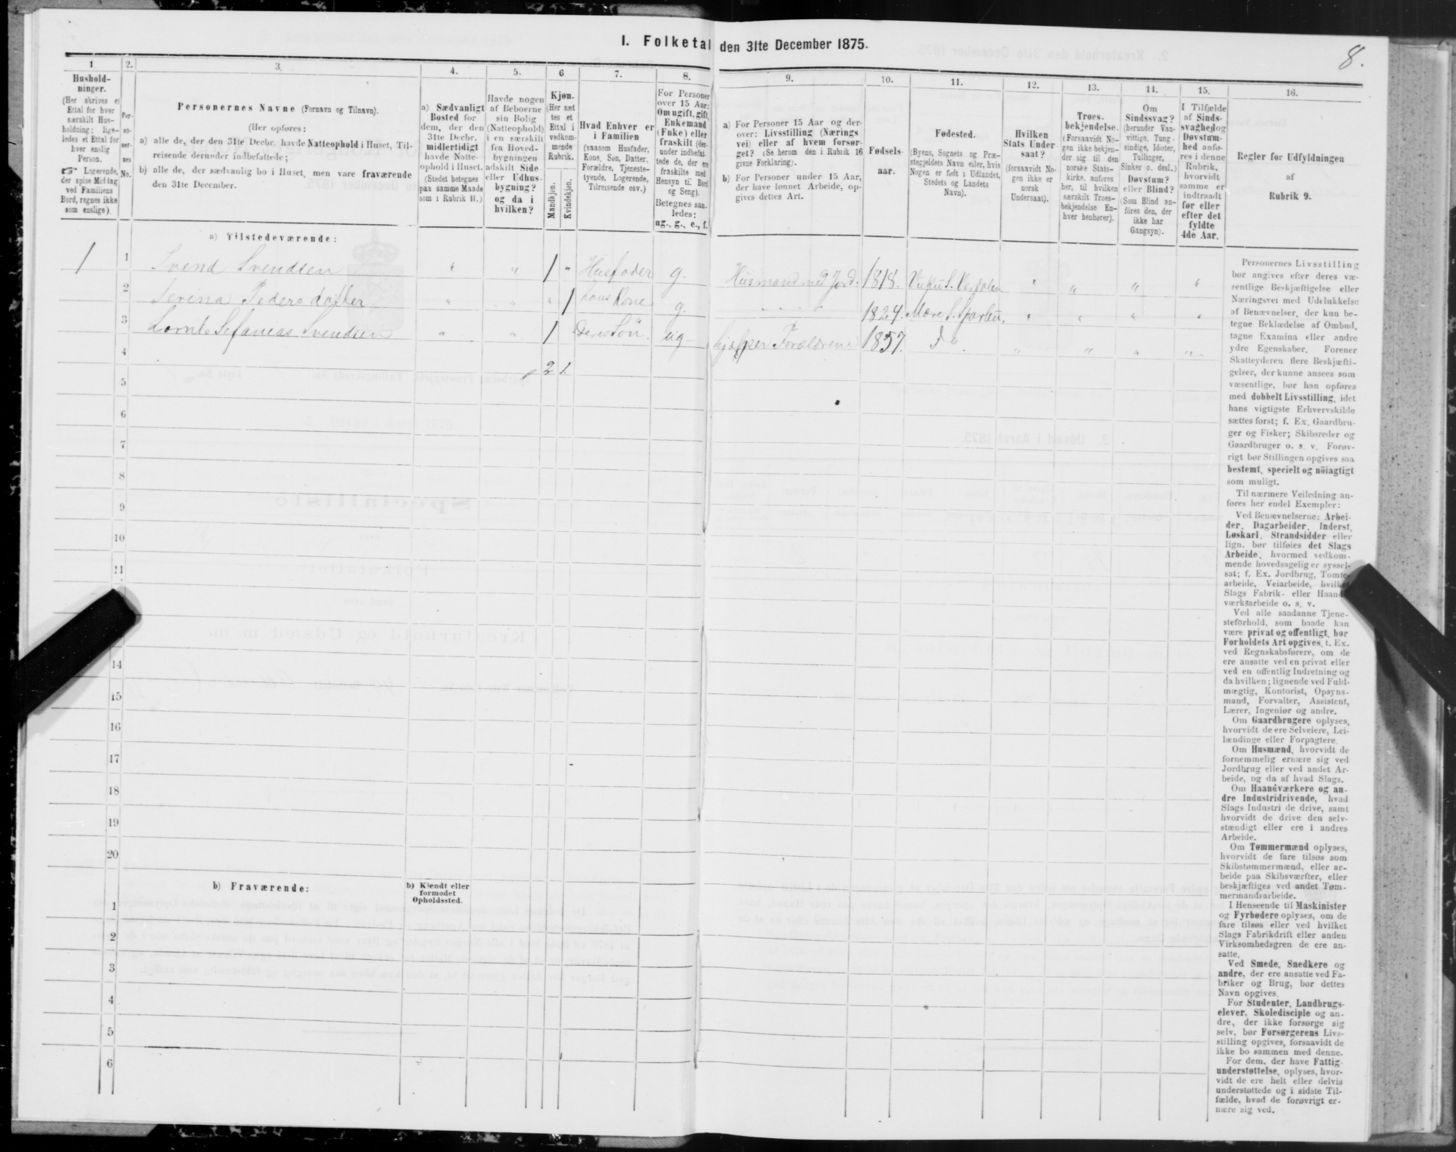 8.
I. Folketal den 31te December 1875.
1
Hushold-
ninger.
(Her skrives et
Ettal for hver
særskilt Hus-
holdning; lige-
ledes et Ettal for
hver enslig
Person.
☞ Logerende,
der spise Middag
ved Familiens
Bord, regnes ikke
som enslige).
2.
Per-
so-
ner-
nes
No.
3.
Personernes Navne (Fornavn og Tilnavn).
(Her opføres:
a) alle de, der den 31te Decbr. havde Natteophold i Huset, Til-
reisende derunder indbefattede;
b) alle de, der sædvanlig bo i Huset, men vare fraværende
den 31te December.
4.
a) Sædvanligt
Bosted for
dem, der den
31te Decbr.
midlertidigt
havde Natte-
ophold i Huset.
(Stedet betegnes
paa samme Maade
som i Rubrik 11.)
5.
Havde nogen
af Beboerne
sin Bolig
(Natteophold)
i en særskilt
fra Hoved-
bygningen
adskilt Side-
eller Udhus-
bygning?
og da i
hvilken?
6
Kjøn.
(Her sæt-
tes et
Ettal i
vedkom-
mende
Rubrik.
Mandkjøn.
Kvindekjøn.
7.
Hvad Enhver er
i Familien
(saasom Husfader,
Kone, Søn, Datter,
Forældre, Tjeneste-
tyende, Logerende,
Tilreisende osv.)
8.
For Personer
over 15 Aar:
Om ugift, gift,
Enkemand
(Enke) eller
fraskilt (der-
under indbefat-
tede de, der ere
fraskilte med
Hensyn til Bord
og Seng).
Betegnes saa-
ledes:
ug., g., e., f.
9.
a) For Personer 15 Aar og der-
over: Livsstilling (Nærings-
vei) eller af hvem forsør-
get? (Se herom den i Rubrik 16
givne Forklaring).
b) For Personer under 15 Aar,
der have lønnet Arbeide, op-
gives dettes Art.
10.
Fødsels-
aar.
11.
Fødested.
(Byens, Sognets og Præ-
stegjeldets Navn eller, hvis
Nogen er født i Udlandet,
Stedets og Landets
Navn).
12.
Hvilken
Stats Under-
saat?
(forsaavidt No-
gen ikke er
norsk
Undersaat).
13.
Troes-
bekjendelse.
(Forsaavidt No-
gen ikke bekjen-
der sig til den
norske Stats-
kirke, anføres
her, til hvilken
særskilt Troes-
bekjendelse En-
hver henhører).
14.
Om
Sindssvag?
(herunder Van-
vittige, Tung-
sindige, Idioter,
Tullinger,
Sinker o. desl.)
Døvstum?
eller Blind?
(Som Blind an-
føres den, der
ikke har
Gangsyn).
15.
I Tilfælde
af Sinds-
svaghed og
Døvstum-
hed anfø-
res i denne
Rubrik,
hvorvidt
samme er
indtraadt
før eller
efter det
fyldte
4de Aar.
16.
Regler for Udfyldningen
af
Rubrik 9.
a) Tilstedeværende:
1 1 Svend Svendsen " " 1 " Husfader g. Husmand med Jord. 1818. " " " "
2 Serina Pedersdatter " " " 1 hans Kone g. " " " 1824. " " " "
3 Svendsen " " 1 Søn. ug hjælper Forældrene 1857. Do " " " "
4
2 1
5
6
7
8
9
10
11
14
15
16
17
18
19
20
b) Fraværende:
b) Kjendt eller
formodet
Opholdssted.
1
2
3
4
5
6
Personernes Livsstilling
bør angives efter deres væ-
sentlige Beskjæftigelse eller
Næringsvei med Udelukkelse
af Benævnelser, der kun be-
tegne Beklædelse af Ombud,
tagne Examina eller andre
ydre Egenskaber. Forener
Skatteyderen flere Beskjæfti-
gelser, der kunne ansees som
væsentlige, bør han opføres
med dobbelt Livsstilling, idet
hans vigtigste Erhvervskilde
sættes først; f. Ex. Gaardbru-
ger og Fisker; Skibsreder og
Gaardbruger o. s. v. Forøv-
rigt bør Stillingen opgives saa
bestemt, specielt og nøiagtigt
som muligt.
Til nærmere Veiledning an-
føres her endel Exempler:
Ved Benævnelserne: Arbei-
der, Dagarbeider, Inderst,
Løskarl, Strandsidder eller
lign. bør tilføies det Slags
Arbeide, hvormed vedkom-
mende hovedsagelig er syssel-
sat; f. Ex. Jordbrug, Tomte-
arbeide, Veiarbeide, hvilket
Slags Fabrik- eller Haand-
værksarbeide o. s. v.
Ved alle saadanne Tjene-
steforhold, som baade kan
være privat og offentligt, bør
Forholdets Art opgives, t. Ex.
ved Regnskabsførere, om de
ere ansatte ved en privat eller
ved en offentlig Indretning og
da hvilken; lignende ved Fuld-
mægtig, Kontorist, Opsyns-
mand, Forvalter, Assistent,
Lærer, Ingeniør og andre.
Om Gaardbrugere oplyses,
hvorvidt de ere Selveiere, Lei-
lændinge eller Forpagtere.
Om Husmænd, hvorvidt de
fornemmelig ernære sig ved
Jordbrug eller ved andet Ar-
beide, og da af hvad Slags.
Om Haandværkere og an-
dre Industridrivende, hvad
Slags Industri de drive, samt
hvorvidt de drive den selv-
stændigt eller ere i andres
Arbeide.
Om Tømmermænd oplyses,
hvorvidt de fare tilsøs som
Skibstømmermænd, eller ar-
beide paa Skibsværfter, eller
beskjæftiges ved andet Tøm-
mermandsarbeide.
I Henseende til Maskinister
og Fyrbødere oplyses, om de
fare tilsøs eller ved hvilket
Slags Fabrikdrift eller anden
Virksomhedsgren de ere an-
satte.
Ved Smede, Snedkere og
andre, der ere ansatte ved Fa-
briker og Brug, bør dettes
Navn opgives.
For Studenter, Landbrugs-
elever, Skoledisciple og an-
dre, der ikke forsørge sig
selv, bør Forsørgerens Livs-
stilling opgives, forsaavidt de
ikke bo sammen med denne.
For dem, der have Fattig-
understøttelse, oplyses, hvor-
vidt de ere helt eller delvis
understøttede og i sidste Til-
fælde, hvad de forøvrigt er-
nære sig ved.